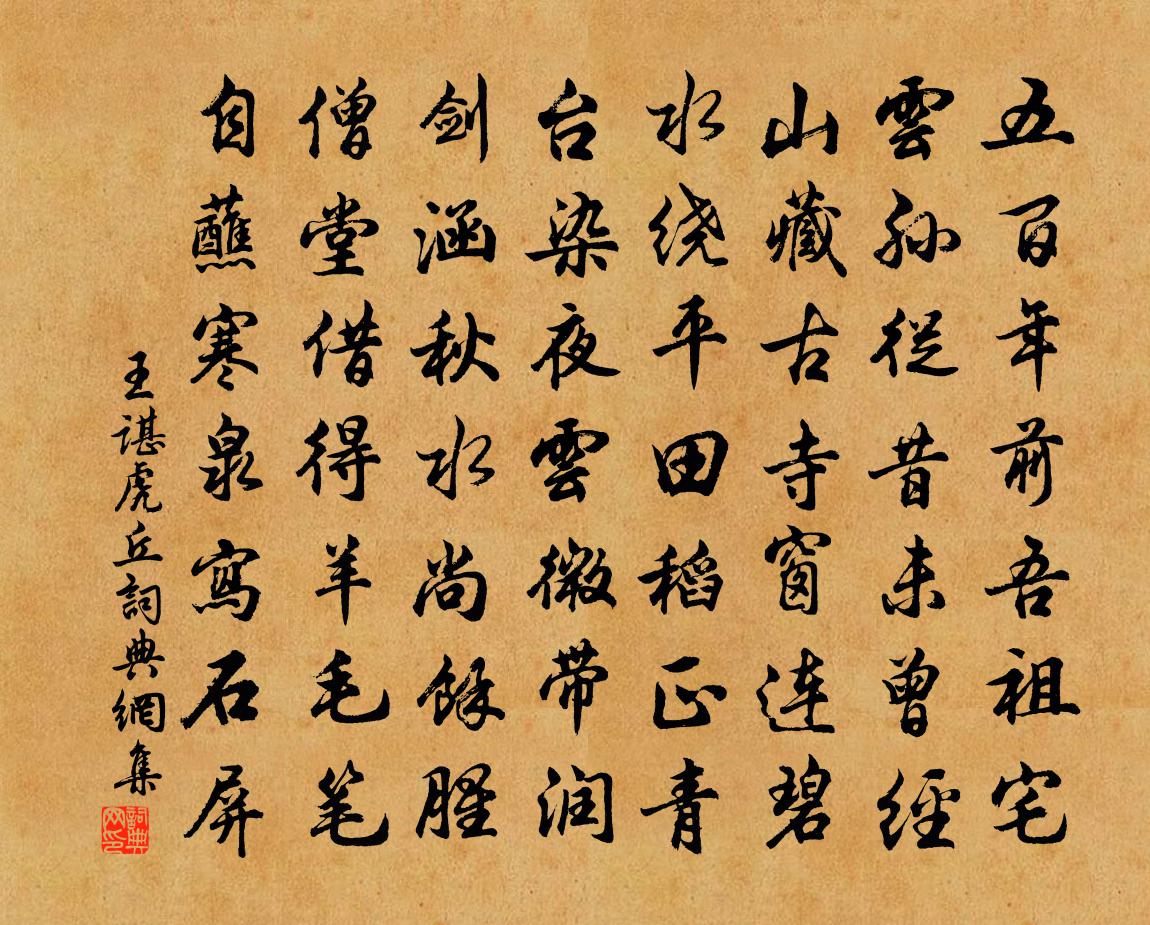 五百年前吾祖宅
雲孙從昔未曾經
山藏古寺窗連碧
水绕平田稻正青
台染夜雲微带润
剑涵秋水尚餘腥
僧堂借得羊毛笔
自蘸寒泉寫石屏
王諶虎丘詞典網集
詞典网印